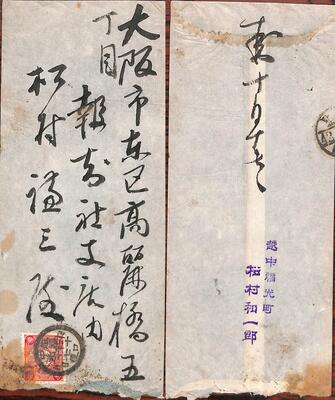 大阪市東区高麗橋五
丁目
報知社支店内
松村謙三殿
十月十七
越中福光町
松村和一郎